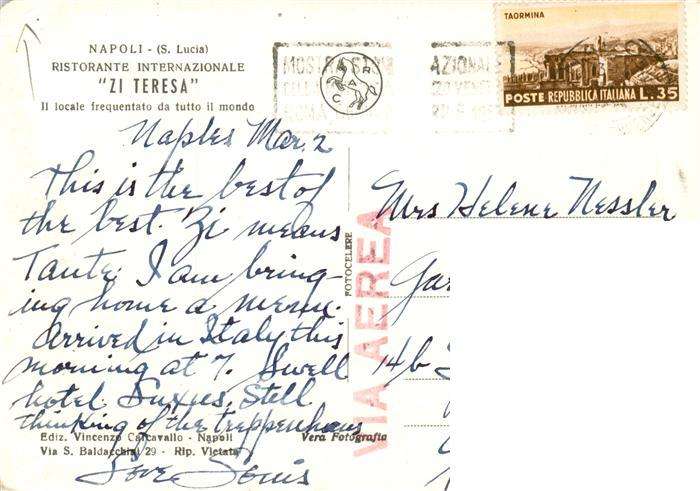 NAPOLI - (S. Lucia)
RISTORANTE INTERNAZIONALE
"ZI TERESA"
Il locale frequentato da tutto il mondo
TAORMINA
POSTE REPUBBLICA ITALIANA L. 35
MOSTRA
AZIONALE
Naples Mar. 2
This is the best of
the best. Zi means
Tante. I am bring-
ing home a menu.
Arrived in Italy this
morning at 7. Swell
hotel. Luxus. Still
thinking of the treppenhaus
Love
Ediz. Vincenzo Carcavallo - Napoli
Via S. Baldacchini 29 - Rip. Vietata
Vera Fotografia
FOTOCELERE
VIA AEREA
Mrs Helene Nessler
Gar
14/b